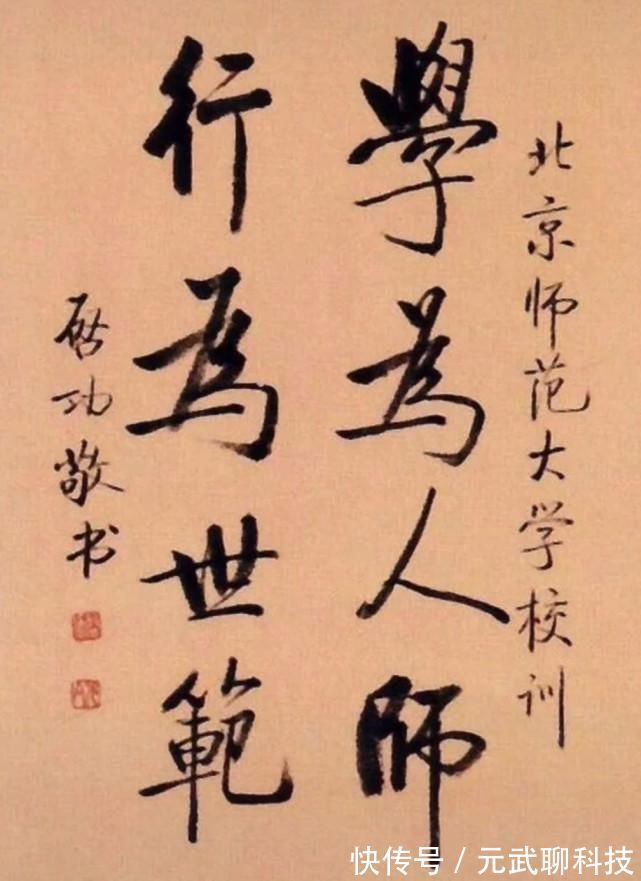 北京师范大学校训
學為人師
行為世範
启功敬书
快传号 / 元武聊科技